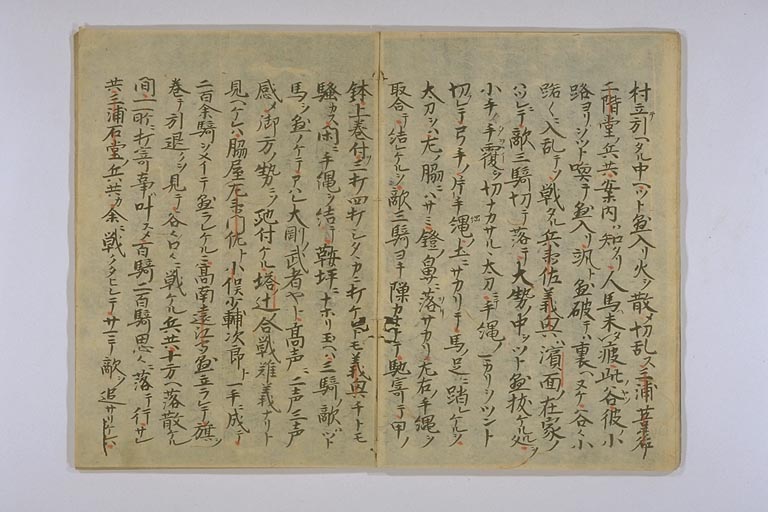 村立引ヘタル中ヘツト懸入リ火ヲ散メ切乱ス三浦葦名
二階堂兵共案内ハ知タリ人馬未タ疲此谷彼小
路ヨリツト喚テ懸入リ汎ト懸破テ裏ヘヌケ谷々小
路々ニ入乱テソ戦タル兵衛佐義興ハ濱面ノ在家ノ
ニテ敵三騎切テ落シ大勢ノ中ヲツト懸抜ケル処ヲ
小手ノ手覆ヲ切ナカサル太刀ニ手縄ノ一カリシツント
切レテ弓手ノ片手縄土ニサカリテ馬ノ足ニ踏レケルヲ
太刀ヲハ左ノ脇ニハサミ鐙ノ鼻ニ落サカリ左右ノ手縄ヲ
取合テ結ケルヲ敵三騎ヨキ隙カナトテ馳寄テ甲ノ
鉢ト上巻付ヲ三打四打シタヽカニ打ケレトモ義興チトモ
騒カス閑ニ手縄ヲ結テ鞍坪ニナホリ玉ヘハ三騎ノ敵ハト
馬ヲ懸ノケテアハレ大剛ノ武者ヤト高声ニ二声三声
感メ御方ノ勢ニソ馳付ケル塔辻合戦難義ナリト
見ヘケレハ脇屋左衛門佐ト小俣少輔次郎ト一手ニ成テ
二百余騎ヲメイテ懸ラレケルニ高南遠江守懸立ラレテ旗ヲ
巻テ引退ノヲ見テ谷々ロ々ニ戦ケル兵共十方ヘ落散ケル
間二一所ニ打寄事叶ハス百騎二百騎思々ニ落テ行サレ
共三浦石堂兵共カ余ニ戦ヒクタヒレテサマテ敵ヲ追サリケレハ